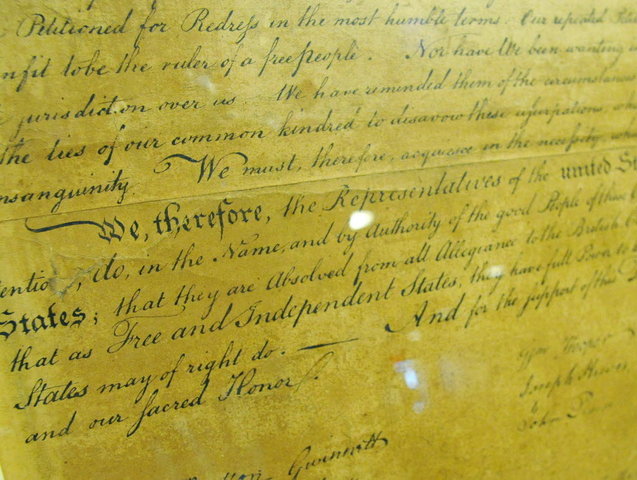 Petitioned for Redress in the most humble terms. Our repeated
nfit to be the ruler of a free people. Nor have We been wanting
jurisdiction over us. We have reminded them of the circumstances
the ties of our common kindred to disavow these usurpations, wh
nsanguinity. We must, therefore, acquiesce in the necessity, wh
We, therefore, the Representatives of the united St
entions, do, in the Name, and by Authority of the good People of these
States; that they are Absolved from all Allegiance to the British
that as Free and Independent States, they have full Power to
States may of right do. — And for the support of this
and our sacred Honor.
Joseph Hewes
John Penn
Gwinnett